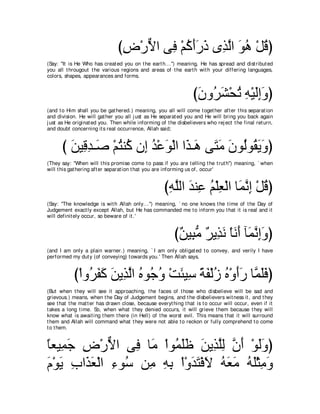 (قُلْ هُوَ الَّذِى ذَرَأَكُمْ فِى الاٌّرْضِ)
(Say: "It is He Who has created you on the earth...") meaning, He has spread and distributed
you all througout the various regions and areas of the earth with your differing languages,
colors, shapes, appearances and forms.
(وَإِلَيْهِ تُحْشَرُونَ)
(and to Him shall you be gathered.) meaning, you all will come together after this separation
and division. He will gather you all just as He separated you and He will bring you back again
just as He originated you. Then while informing of the disbelievers who reject the final return,
and doubt concerning its real occurrence, Allah said;
(وَيَقُولُونَ مَتَى هَـذَا الْوَعْدُ إِن كُنتُمْ صَـدِقِينَ )
(They say: "When will this promise come to pass if you are telling the truth") meaning, `when
will this gathering after separation that you are informing us of, occur'
(قُلْ إِنَّمَا الْعِلْمُ عِندَ اللَّهِ)
(Say: "The knowledge is with Allah only...") meaning, `no one knows the time of the Day of
Judgement exactly except Allah, but He has commanded me to inform you that it is real and it
will definitely occur, so beware of it.'
(وَإِنَّمَآ أَنَاْ نَذِيرٌ مُّبِينٌ)
(and I am only a plain warner.) meaning, `I am only obligated to convey, and verily I have
performed my duty (of conveying) towards you.' Then Allah says,
(فَلَمَّا رَأَوْهُ زُلْفَةً سِيئَتْ وُجُوهُ الَّذِينَ كَفَرُواْ)
(But when they will see it approaching, the faces of those who disbelieve will be sad and
grievous.) means, when the Day of Judgement begins, and the disbelievers witness it, and they
see that the matter has drawn close, because everything that is to occur will occur, even if it
takes a long time. So, when what they denied occurs, it will grieve them because they will
know what is awaiting them there (in Hell) of the worst evil. This means that it will surround
them and Allah will command what they were not able to reckon or fully comprehend to come
to them.
وَلَوْ أَنَّ لِلَّذِينَ ظَلَمُواْ مَا فِى الاٌّرْضِ جَمِيعاً
وَمِثْلَهُ مَعَهُ لاَفْتَدَوْاْ بِهِ مِن سُوءِ الْعَذَابِ يَوْمَ